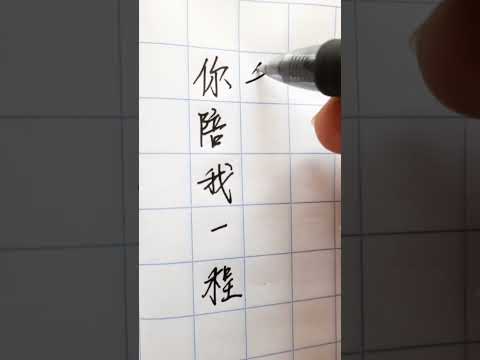 你陪我一程